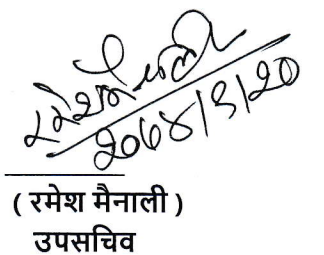 रमेश मैनाली
२०७४/९/२०
( रमेश मैनाली )
उपसचिव